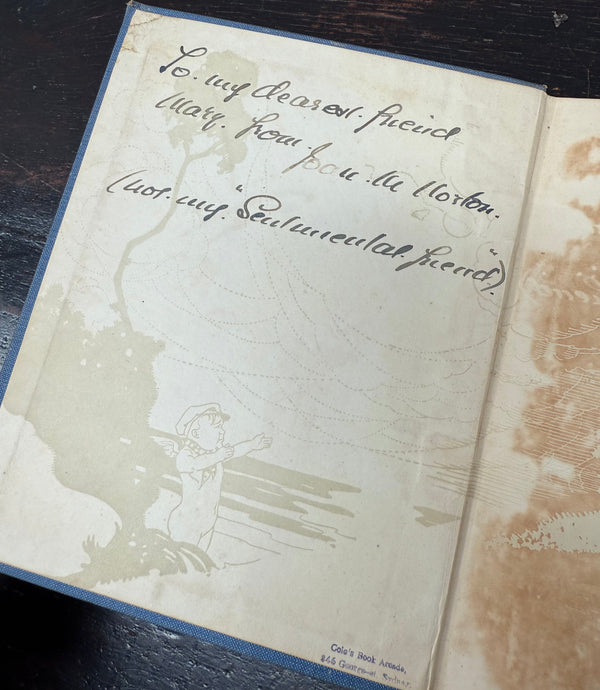 To. my dearest. friend
Mary. from. Joan. M Norton.
(not. my "Sentimental. friend").
Cole's Book Arcade,
346 George-st Sydney.